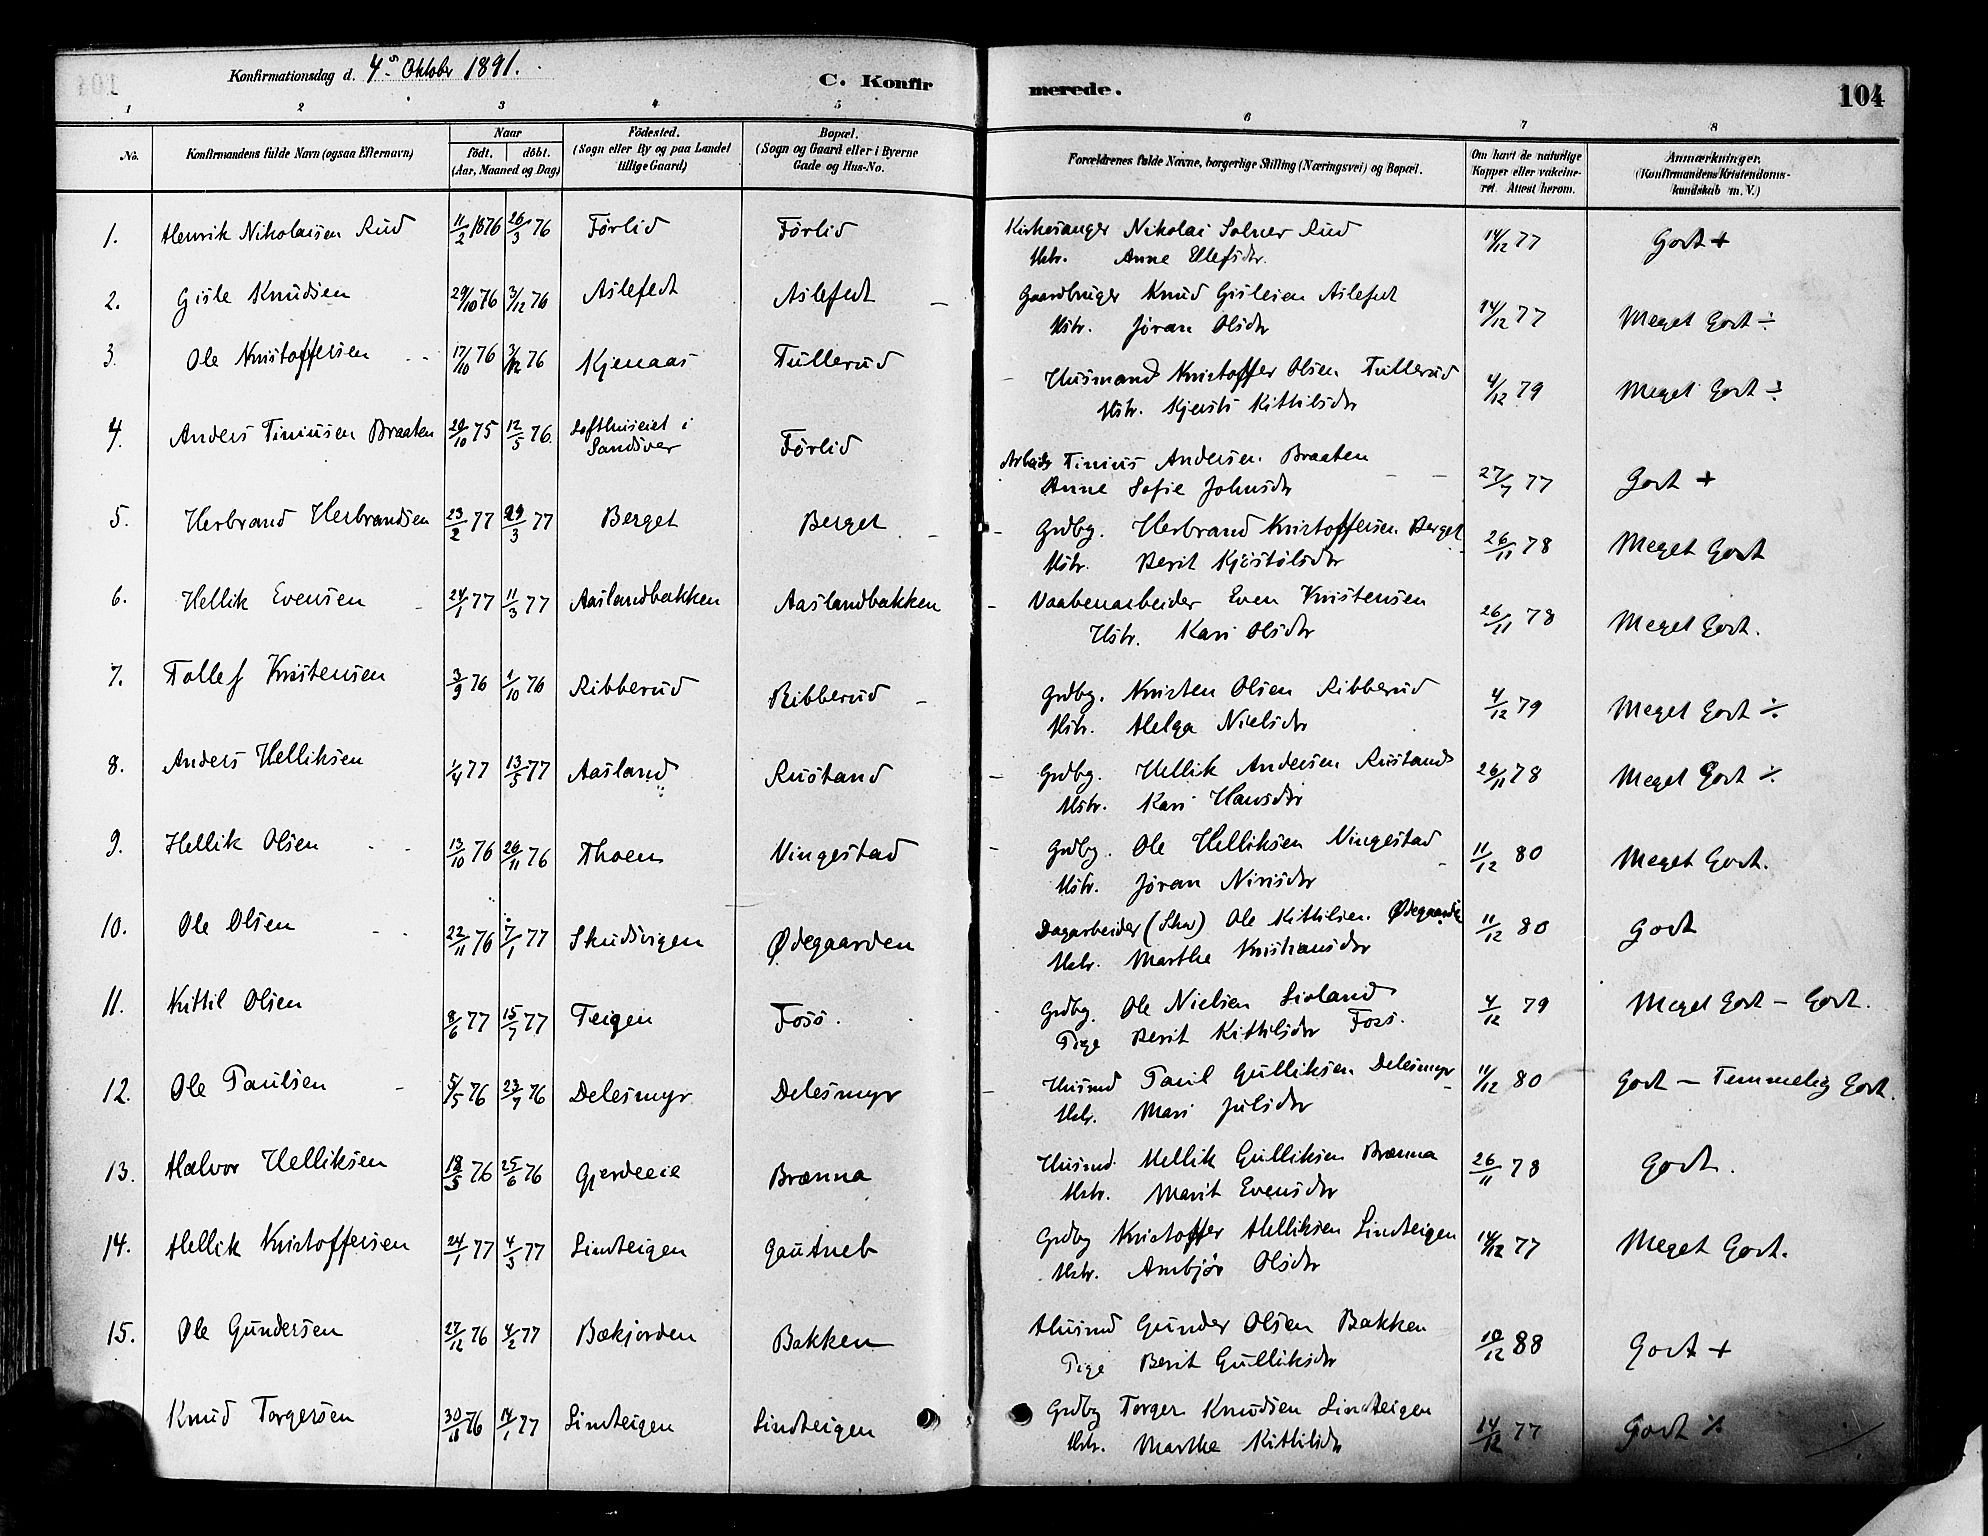 Konfirmationsdag d. 4de Oktober 1891.
C. Konfirmerede.
104
1 2 3 4 5 6 7 8
No.
Konfirmandens fulde Navn (ogsaa Efternavn)
Naar
födt. döbt.
(Aar, Maaned og Dag)
Födested.
(Sogn eller By og paa Landet
tillige Gaard)
Bopæl.
(Sogn og Gaard eller i Byerne
Gade og Hus-No.
Forældrenes fulde Navne, borgerlige Stilling (Næringsvei) og Bopæl.
Om havt de naturlige
Kopper eller vakcine-
ret. Attest herom.
Anmærkninger.
(Konfirmandens Kristendoms-
kundskab m. V.)
1. Henrik Nikolaisen Rud 11/2 1876 26/3 76 Førlid Førlid Kirkesanger Nikolai Solner Rud 14/12 77 Godt +
Hstr. Anne Ellefsdtr.
2. Gisle Knudsen 29/10 76 3/12 76 Aslefedt Aslefedt Gaardbruger Knud Gislesen Aslefedt 14/12 77 Meget Godt ÷
Hstr. Jøran Olsdtr
3. Ole Kristoffersen 17/10 76 3/12 76 Kjenaas Tullerud Husmand Kristoffer Olsen Tullerud 4/12 79 Meget Godt ÷
Hstr. Kjersti Kittilsdtr
4. Anders Tiniusen Braaten 29/10 75 12/5 76. Lofthuseiet i Sandsver Førlid Arbeider Tinius Andersen Braaten 27/7 77 Godt +
Anne Sofie Johnsdtr
5. Herbrand Herbrandsen 23/2 77 29/3 77 Berget Berget Grdbg. Herbrand Kristoffersen Berget 26/11 78 Meget Godt
Hstr. Berit Kjøstølsdtr
6. Hellik Evensen 24/1 77 11/3 77 Aaslandbakken Aaslandbakken Vaabenarbeider Even Kristensen 26/11 78 Meget Godt.
Hstr. Kari Olsdtr
7. Tollef Kristensen 3/9 76 1/10 76 Ribberud Ribberud Grdbg. Kristen Olsen Ribberud 4/12 79 Meget Godt ÷
Hstr. Helga Nielsdtr
8. Anders Helliksen 1/4 77 13/5 77 Aasland Rustand Grdbg. Hellik Andersen Rustand 26/11 78 Meget Godt ÷
Hstr. Kari Hansdtr
9. Hellik Olsen 13/10 76 26/11 76 Thoen Vingestad Grdbg. Ole Helliksen Vingestad 11/12 80 Meget Godt.
Hstr. Jøran Nirisdtr
10. Ole Olsen 22/11 76 7/1 77 Skudsvigen Ødegaarden Dagarbeider Ole Kittilsen Ødegaarden 11/12 80 Godt
Hstr. Marthe Kristiansdtr
11. Kittil Olsen 8/6 77 15/7 77 Teigen Foss. Grdbg. Ole Nielsen Lioland 4/12 79 Meget Godt - Godt.
Pige Berit Kittilsdtr Foss.
12. Ole Paulsen 5/5 76 23/7 76 Delesmyr Delesmyr Husmd Paul Gulliksen Delesmyr 11/12 80 Godt - Temmelig Godt.
Hstr. Mari Julsdtr
13. Halvor Helliksen 18/5 76 25/6 76 Gjerdeeie Brænna Husmd. Hellik Gulliksen Brænna 26/11 78 Godt.
Hstr. Marit Evensdtr
14. Hellik Kristoffersen 24/1 77 4/3 77 Lindteigen Gautneb Grdbg Kristoffer Helliksen Lindteigen 14/12 77 Meget Godt.
Hstr. Ambjør Olsdtr
15. Ole Gundersen 27/12 76 4/2 77 Bækjorden Bakken Husmd Gunder Olsen Bakken 10/12 88 Godt +
Pige Berit Gulliksdtr
Knud Torgersen 30/11 76 14/1 77 Lindteigen Lindteigen Grdbg Torger Knudsen Lindteigen 14/12 77 Godt ÷
Hstr. Marthe Kittilsdtr